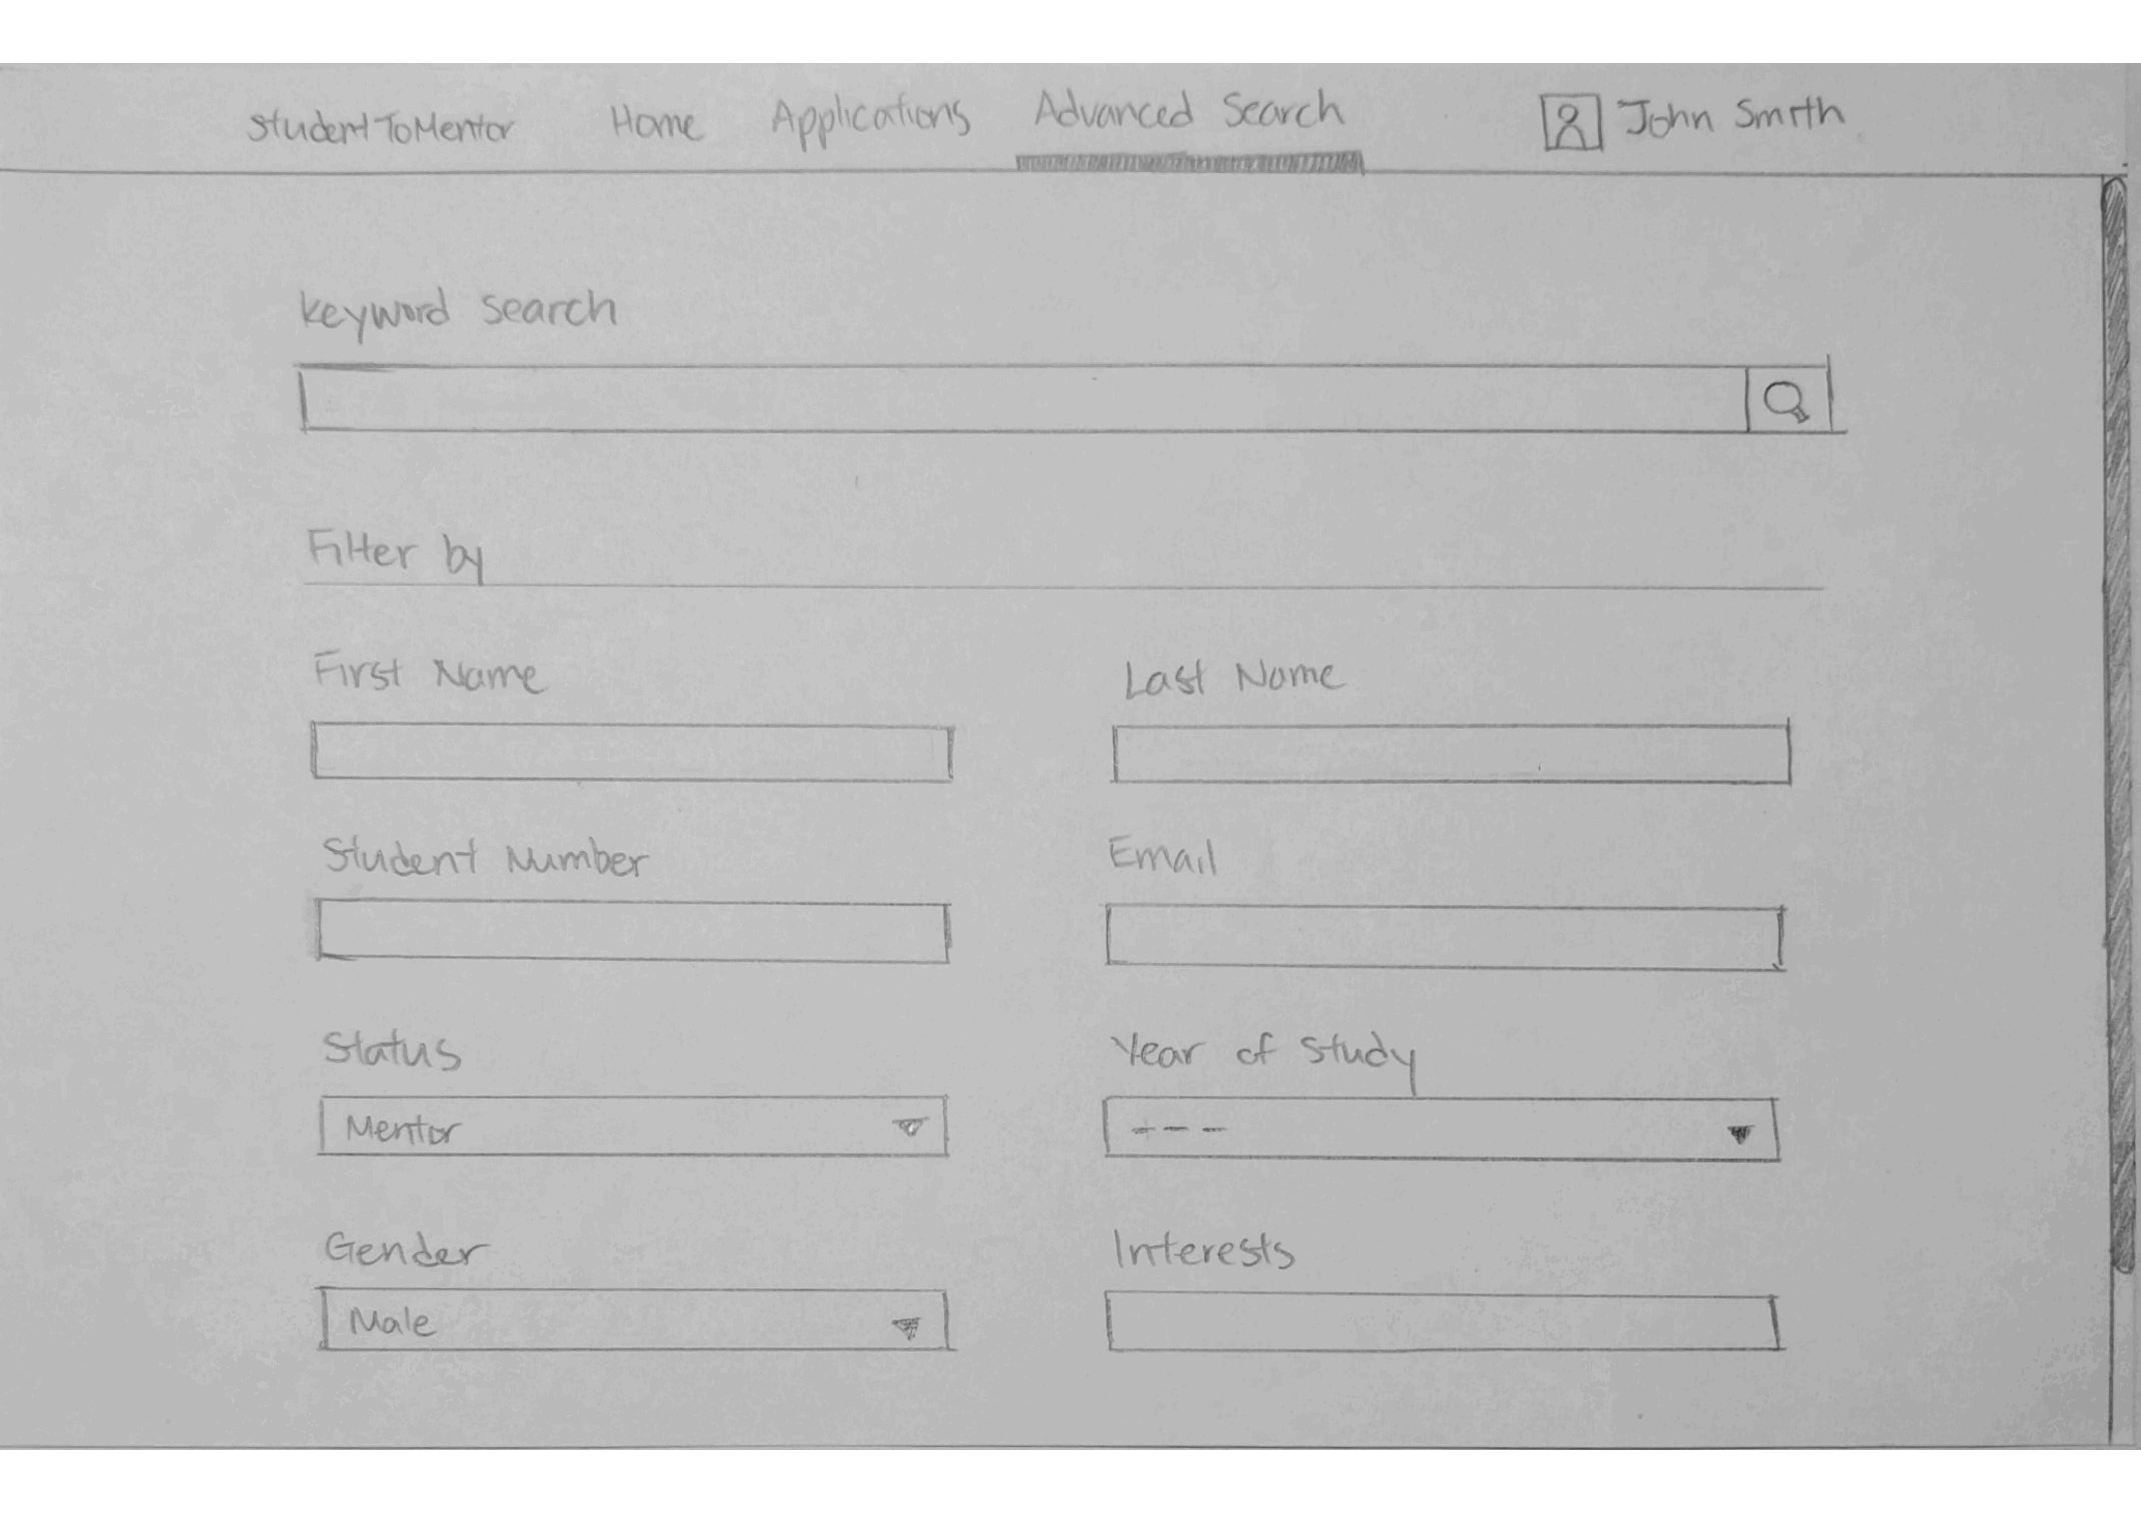 StudentToMentor Home Applications Advanced Search John Smith
Keyword Search
Filter by
First Name Last Name
Student Number Email
Status Year of Study
Mentor ---
Gender Interests
Male